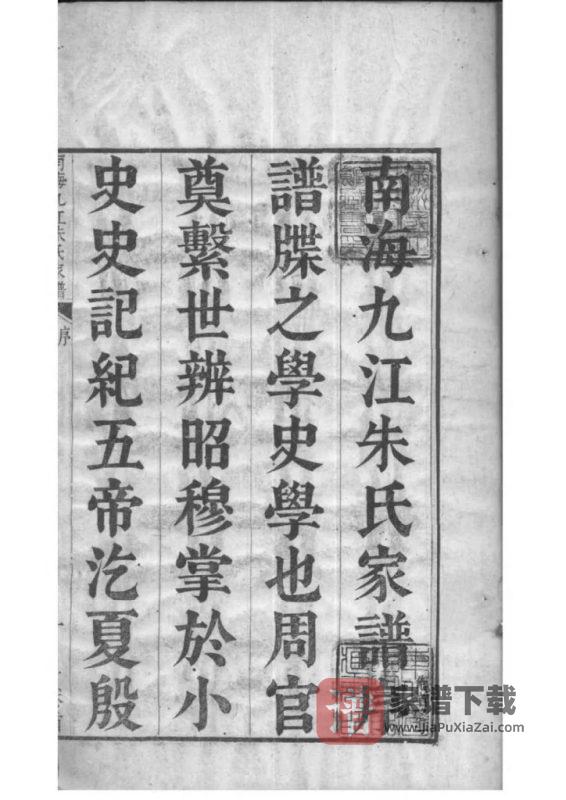 南海九江朱氏家譜序
譜牒之學史學也周官
奠繫世辨昭穆掌於小
史史記紀五帝汔夏殷
南海九江朱氏家譜
序
家谱下载
www.JiaPuXiaZai.com